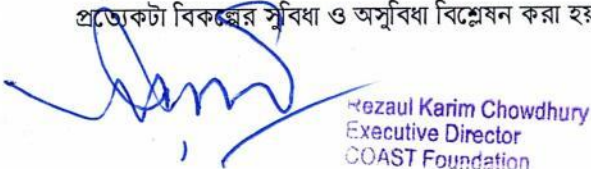 প্রত্যেকটা বিকল্পের সুবিধা ও অসুবিধা বিশ্লেষন করা হয়
Rezaul Karim Chowdhury
Executive Director
COAST Foundation